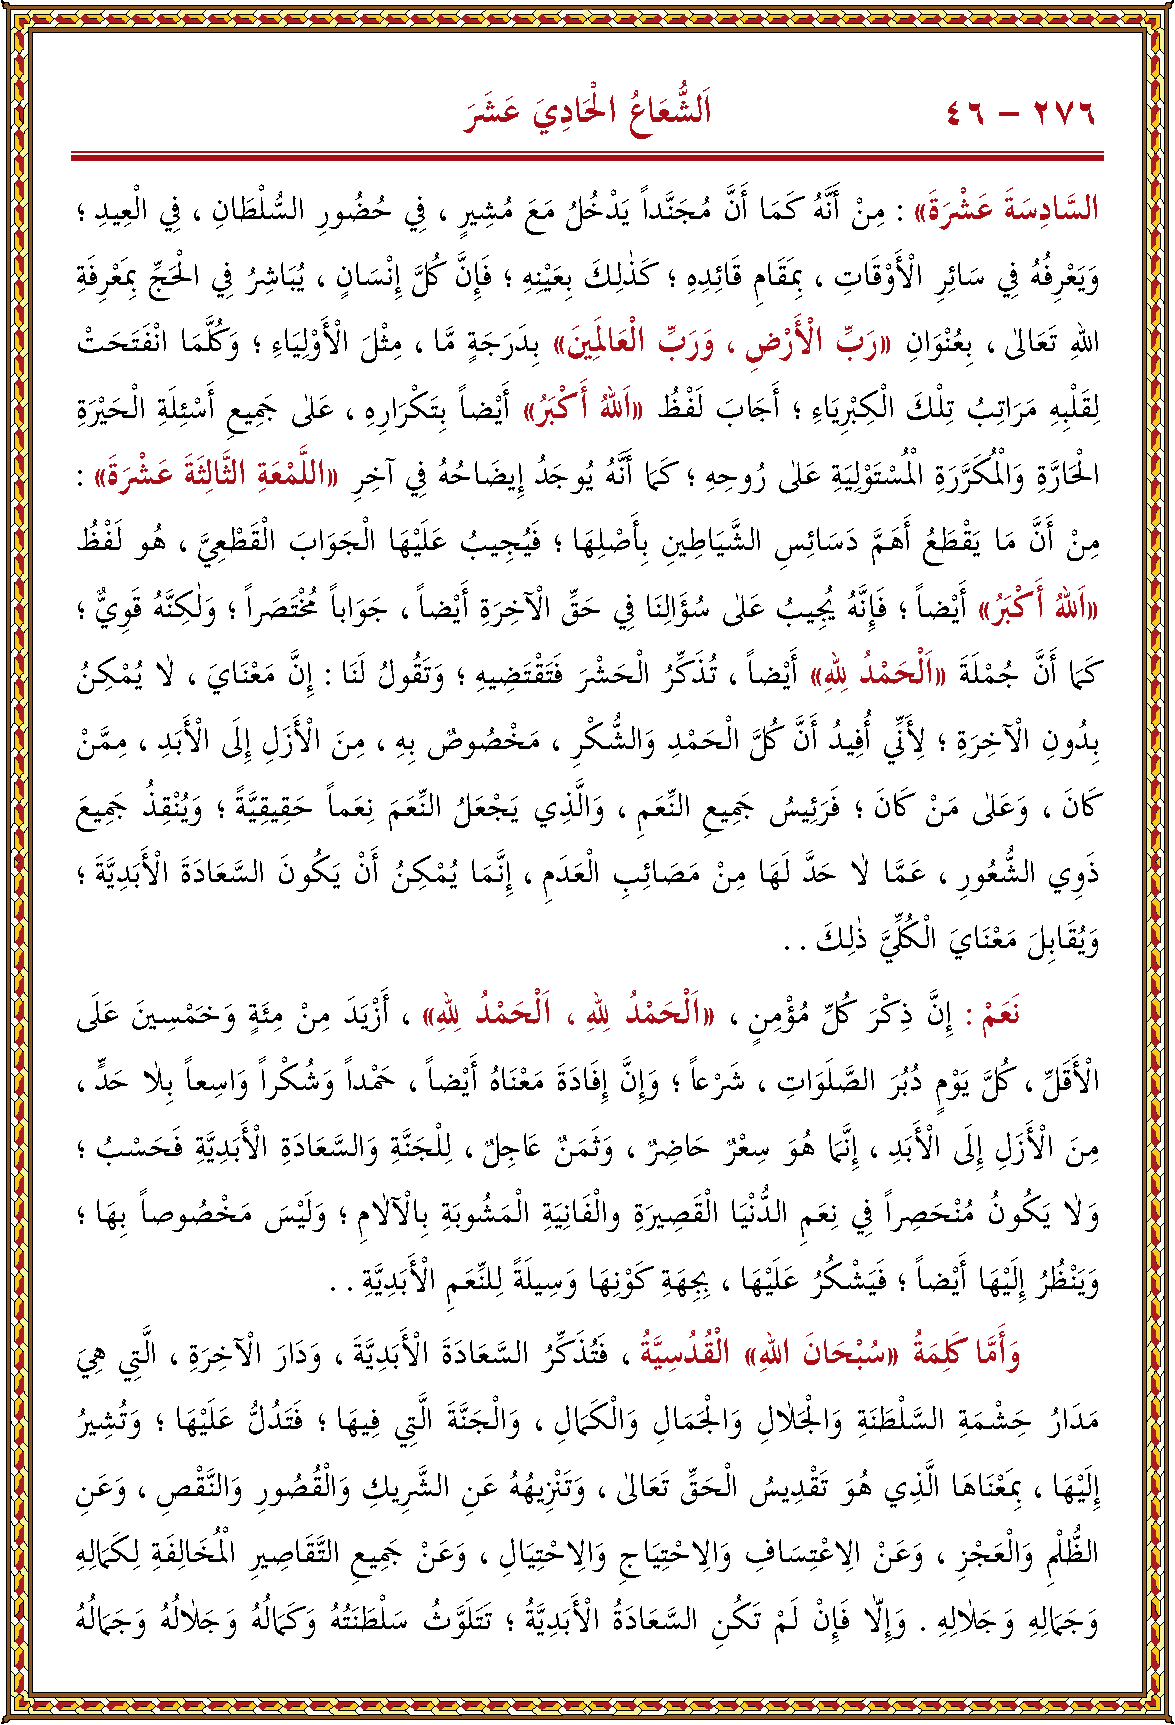 ٢٧٦ – ٤٦ اَلشُّعَاعُ الْحَادِيَ عَشَرَ
السَّادِسَةَ عَشْرَةَ» : مِنْ أَنَّهُ كَمَا أَنَّ مُجَنَّداً يَدْخُلُ مَعَ مُشِيرٍ ، فِي حُضُورِ السُّلْطَانِ ، فِي الْعِيدِ ؛
وَيَعْرِفُهُ فِي سَائِرِ الْأَوْقَاتِ ، بِمَقَامِ قَائِدِهِ ؛ كَذٰلِكَ بِعَيْنِهِ ؛ فَإِنَّ كُلَّ إِنْسَانٍ ، يُبَاشِرُ فِي الْحَجِّ بِمَعْرِفَةِ
اللهِ تَعَالٰى ، بِعُنْوَانِ «رَبِّ الْأَرْضِ ، وَرَبِّ الْعَالَمِينَ» بِدَرَجَةٍ مَّا ، مِثْلَ الْأَوْلِيَاءِ ؛ وَكُلَّمَا انْفَتَحَتْ
لِقَلْبِهِ مَرَاتِبُ تِلْكَ الْكِبْرِيَاءِ ؛ أَجَابَ لَفْظُ «اَللهُ أَكْبَرُ» أَيْضاً بِتَكْرَارِهِ ، عَلٰى جَمِيعِ أَسْئِلَةِ الْحَيْرَةِ
الْحَارَّةِ وَالْمُكَرَّرَةِ الْمُسْتَوْلِيَةِ عَلٰى رُوحِهِ ؛ كَمَا أَنَّهُ يُوجَدُ إِيضَاحُهُ فِي آخِرِ «اللَّمْعَةِ الثَّالِثَةَ عَشْرَةَ» :
مِنْ أَنَّ مَا يَقْطَعُ أَهَمَّ دَسَائِسِ الشَّيَاطِينِ بِأَصْلِهَا ؛ فَيُجِيبُ عَلَيْهَا الْجَوَابَ الْقَطْعِيَّ ، هُو لَفْظُ
«اَللهُ أَكْبَرُ» أَيْضاً ؛ فَإِنَّهُ يُجِيبُ عَلٰى سُؤَالِنَا فِي حَقِّ الْآخِرَةِ أَيْضاً ، جَوَاباً مُخْتَصَراً ؛ وَلٰكِنَّهُ قَوِيٌّ ؛
كَمَا أَنَّ جُمْلَةَ «اَلْحَمْدُ لِلهِ» أَيْضاً ، تُذَكِّرُ الْحَشْرَ فَتَقْتَضِيهِ ؛ وَتَقُولُ لَنَا : إِنَّ مَعْنَايَ ، لاٰ يُمْكِنُ
بِدُونِ الْآخِرَةِ ؛ لِأَنِّي أُفِيدُ أَنَّ كُلَّ الْحَمْدِ وَالشُّكْرِ ، مَخْصُوصٌ بِهِ ، مِنَ الْأَزَلِ إِلَى الْأَبَدِ ، مِمَّنْ
كَانَ ، وَعَلٰى مَنْ كَانَ ؛ فَرَئِيسُ جَمِيعِ النِّعَمِ ، وَالَّذِي يَجْعَلُ النِّعَمَ نِعَماً حَقِيقِيَّةً ؛ وَيُنْقِذُ جَمِيعَ
ذَوِي الشُّعُورِ ، عَمَّا لاٰ حَدَّ لَهَا مِنْ مَصَائِبِ الْعَدَمِ ، إِنَّمَا يُمْكِنُ أَنْ يَكُونَ السَّعَادَةَ الْأَبَدِيَّةَ ؛
وَيُقَابِلَ مَعْنَايَ الْكُلِّيَّ ذٰلِكَ . .
نَعَمْ : إِنَّ ذِكْرَ كُلِّ مُؤْمِنٍ ، «اَلْحَمْدُ لِلهِ ، اَلْحَمْدُ لِلهِ» ، أَزْيَدَ مِنْ مِئَةٍ وَخَمْسِينَ عَلَى
الْأَقَلِّ ، كُلَّ يَوْمٍ دُبُرَ الصَّلَوَاتِ ، شَرْعاً ؛ وَإِنَّ إِفَادَةَ مَعْنَاهُ أَيْضاً ، حَمْداً وَشُكْراً وَاسِعاً بِلاٰ حَدٍّ ،
مِنَ الْأَزَلِ إِلَى الْأَبَدِ ، إِنَّمَا هُوَ سِعْرٌ حَاضِرٌ ، وَثَمَنٌ عَاجِلٌ ، لِلْجَنَّةِ وَالسَّعَادَةِ الْأَبَدِيَّةِ فَحَسْبُ ؛
وَلاٰ يَكُونُ مُنْحَصِراً فِي نِعَمِ الدُّنْيَا الْقَصِيرَةِ وَالْفَانِيَةِ الْمَشُوبَةِ بِالْآلاٰمِ ؛ وَلَيْسَ مَخْصُوصاً بِهَا ؛
وَيَنْظُرُ إِلَيْهَا أَيْضاً ؛ فَيَشْكُرُ عَلَيْهَا ، بِجِهَةِ كَوْنِهَا وَسِيلَةً لِلنِّعَمِ الْأَبَدِيَّةِ . .
وَأَمَّا كَلِمَةُ «سُبْحَانَ اللهِ» الْقُدْسِيَّةُ ، فَتُذَكِّرُ السَّعَادَةَ الْأَبَدِيَّةَ ، وَدَارَ الْآخِرَةِ ، الَّتِي هِيَ
مَدَارُ حِشْمَةِ السَّلْطَنَةِ وَالْجَلاٰلِ وَالْجَمَالِ وَالْكَمَالِ ، وَالْجَنَّةَ الَّتِي فِيهَا ؛ فَتَدُلُّ عَلَيْهَا ؛ وَتُشِيرُ
إِلَيْهَا ، بِمَعْنَاهَا الَّذِي هُوَ تَقْدِيسُ الْحَقِّ تَعَالٰى ، وَتَنْزِيهُهُ عَنِ الشَّرِيكِ وَالْقُصُورِ وَالنَّقْصِ ، وَعَنِ
الظُّلْمِ وَالْعَجْزِ ، وَعَنْ الاِعْتِسَافِ وَالاِحْتِيَاجِ وَالاِحْتِيَالِ ، وَعَنْ جَمِيعِ التَّقَاصِيرِ الْمُخَالِفَةِ لِكَمَالِهِ
وَجَمَالِهِ وَجَلاٰلِهِ . وَإِلاَّ فَإِنْ لَمْ تَكُنِ السَّعَادَةُ الْأَبَدِيَّةُ ؛ تَتَلَوَّثُ سَلْطَنَتُهُ وَكَمَالُهُ وَجَلاٰلُهُ وَجَمَالُهُ